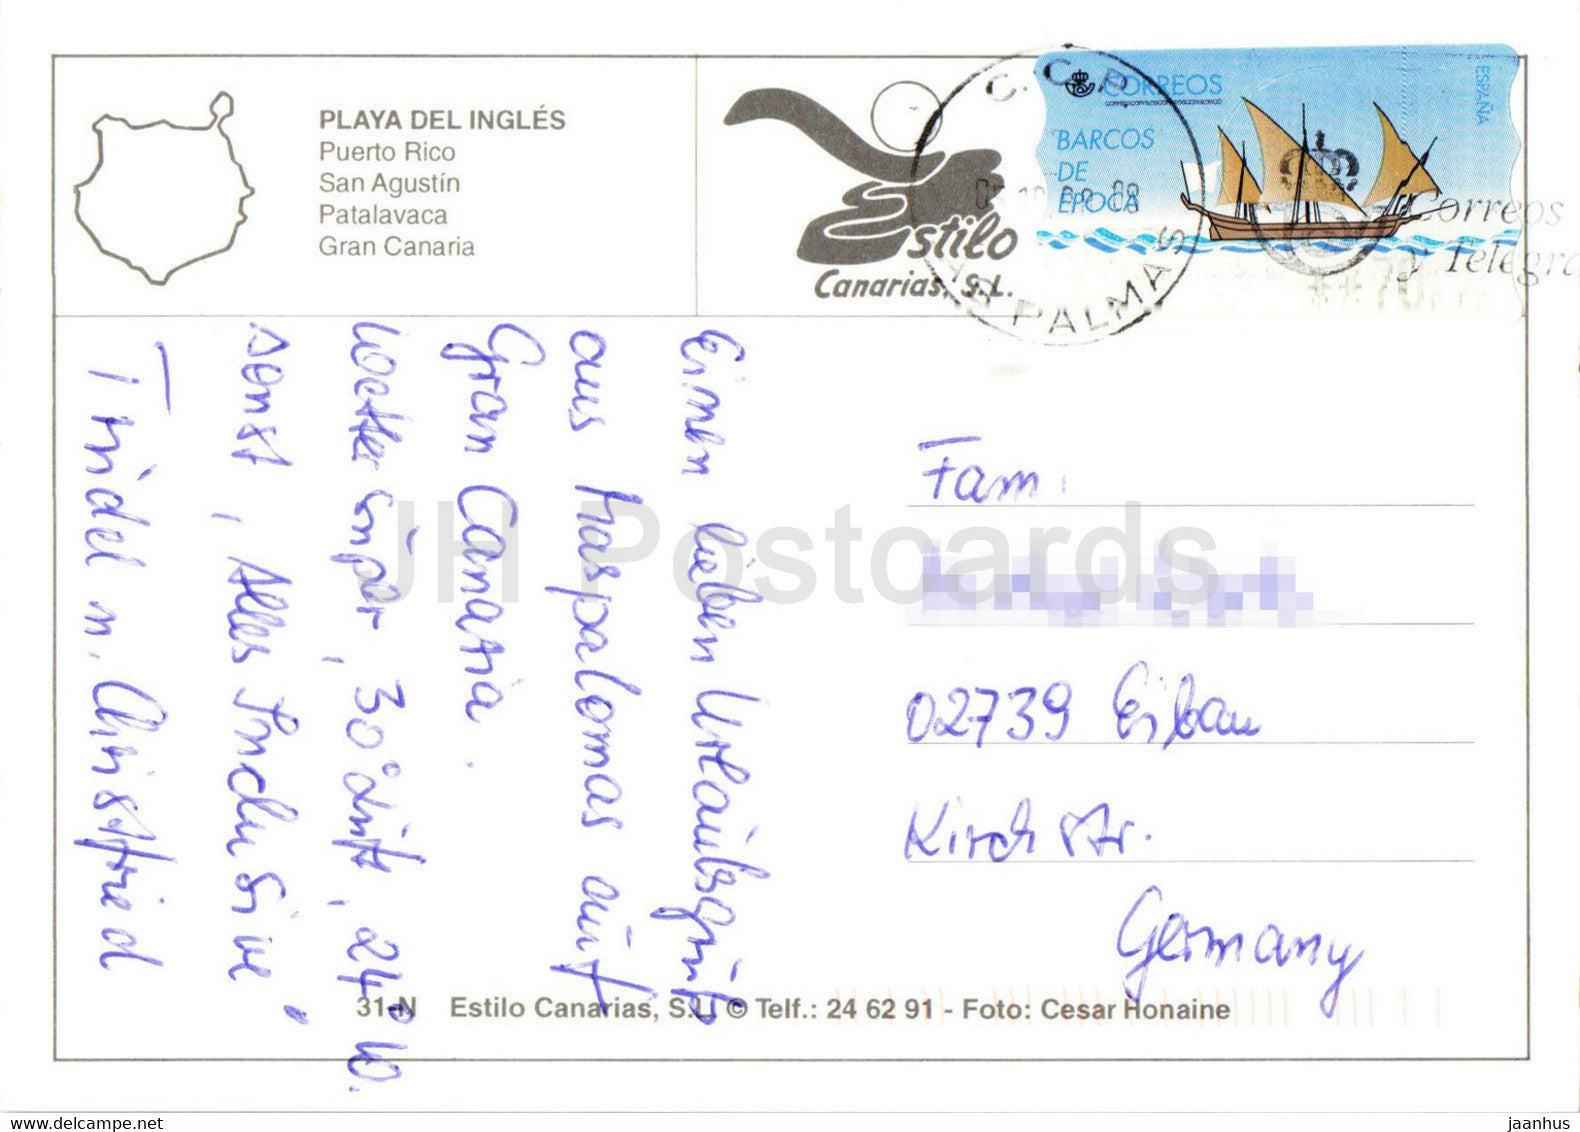 PLAYA DEL INGLÉS
Puerto Rico
San Agustín
Patalavaca
Gran Canaria
Estilo
Canarias, S.L.
C.C.P.
LAS PALMAS
CORREOS
ESPAÑA
BARCOS
DE
EPOCA
Correos
y Telegra
Einen lieben Urlaubsgruß
aus Maspalomas auf
Gran Canaria.
Wetter super, 30° Luft, 24° W.
sonst, Alles Inclusive"
Trudel u. Christfried
Fam.
02739 Eibau
Kirchstr.
Germany
31-N Estilo Canarias, S.L. © Telf.: 24 62 91 - Foto: Cesar Honaine
JH Postcards
jaanhus / www.delcampe.net